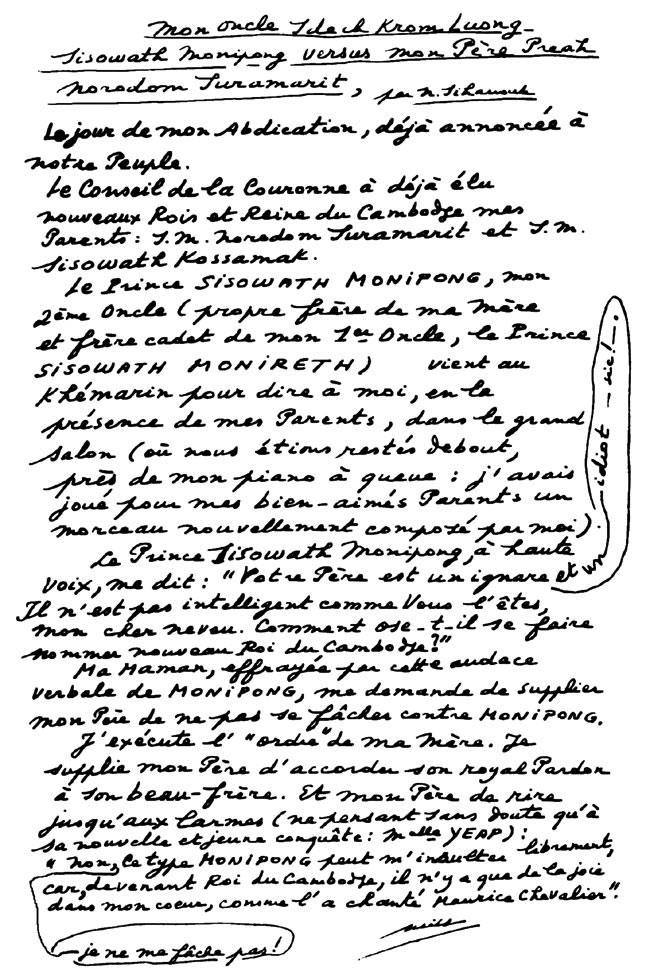 Mon Oncle Sdech Krom Luong
Sisowath Monipong versus mon Père Preah
Norodom Suramarit, par N. Sihanouk
Le jour de mon Abdication, déjà annoncée à
notre Peuple.
Le Conseil de la Couronne a déjà élu
nouveaux Rois et Reine du Cambodge mes
Parents : S.M. Norodom Suramarit et S.M.
Sisowath Kossamak.
Le Prince SISOWATH MONIPONG, mon
2ème Oncle (propre frère de ma Mère
et frère cadet de mon 1er Oncle, le Prince
SISOWATH MONIRETH) vient au
Khémarin pour dire à moi, en la
présence de mes Parents, dans le grand
salon (où nous étions restés debout,
près de mon piano à queue : j'avais
joué pour mes bien-aimés Parents un
morceau nouvellement composé par moi).
Le Prince Sisowath Monipong, à haute
voix, me dit : "Votre Père est un ignare et un idiot - sic! - .
Il n'est pas intelligent comme Vous l'êtes,
mon cher neveu. Comment ose-t-il se faire
nommer nouveau Roi du Cambodge?"
Ma Maman, effrayée par cette audace
verbale de MONIPONG, me demande de supplier
mon Père de ne pas se fâcher contre MONIPONG.
J'exécute l'"ordre" de ma Mère. Je
supplie mon Père d'accorder son royal Pardon
à son beau-frère. Et mon Père de rire
jusqu'aux larmes (ne pensant sans doute qu'à
sa nouvelle et jeune conquête : Melle YEAP) :
"Non, ce type MONIPONG peut m'insulter librement,
je ne me fâche pas!
car, devenant Roi du Cambodge, il n'y a que de la joie
dans mon coeur, comme l'a chanté Maurice Chevalier".